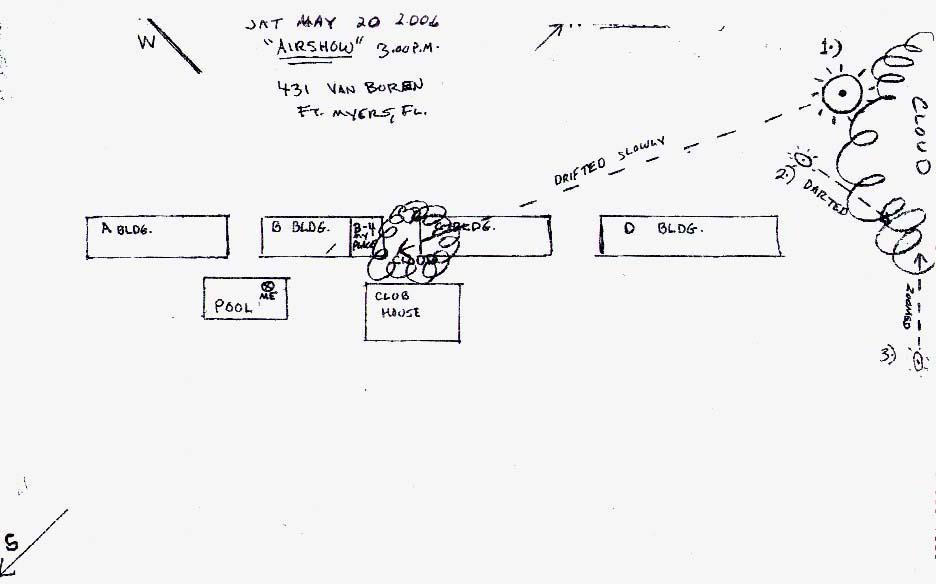 W
SAT MAY 20 2006
"AIRSHOW" 3:00 P.M.
431 VAN BOREN
FT. MYERS, FL.
1.)
CLOUD
DRIFTED SLOWLY
2.)
DARTED
A BLDG.
B BLDG.
B-4
MY
PLACE
BLDG.
D BLDG.
CLOUD
ZOOMED
3.)
POOL
ME
CLUB
HOUSE
S